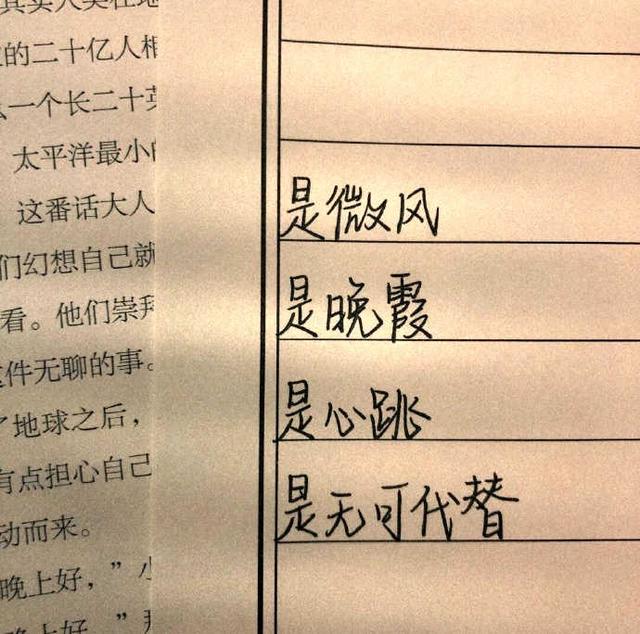 的二十亿人相
一个长二十英
太平洋最小
这番话大人
们幻想自己就
看。他们崇拜
件无聊的事。
了地球之后，
有点担心自己
动而来。
晚上好，”小
晚上好。”
是微风
是晚霞
是心跳
是无可代替